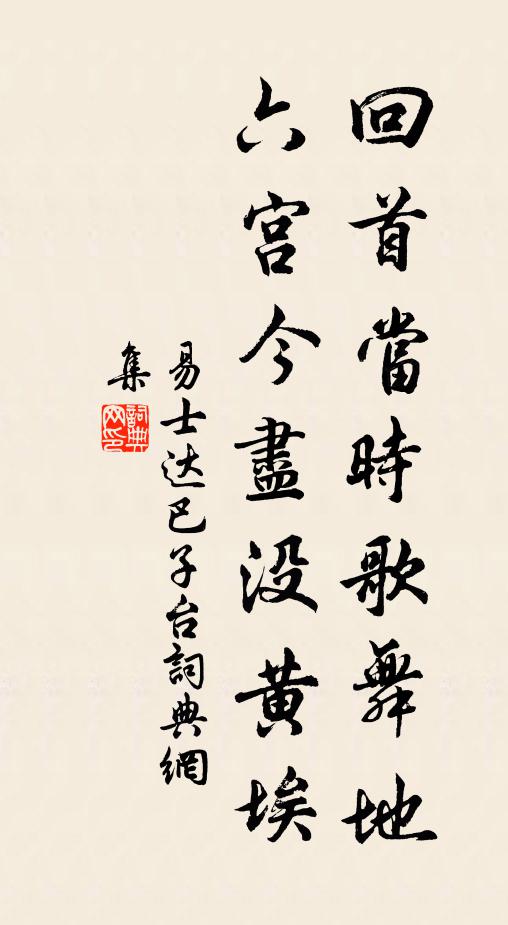 回首當時歌舞地
六宮今盡没黃埃
易士达巴子台詞典網
集
詞典網印